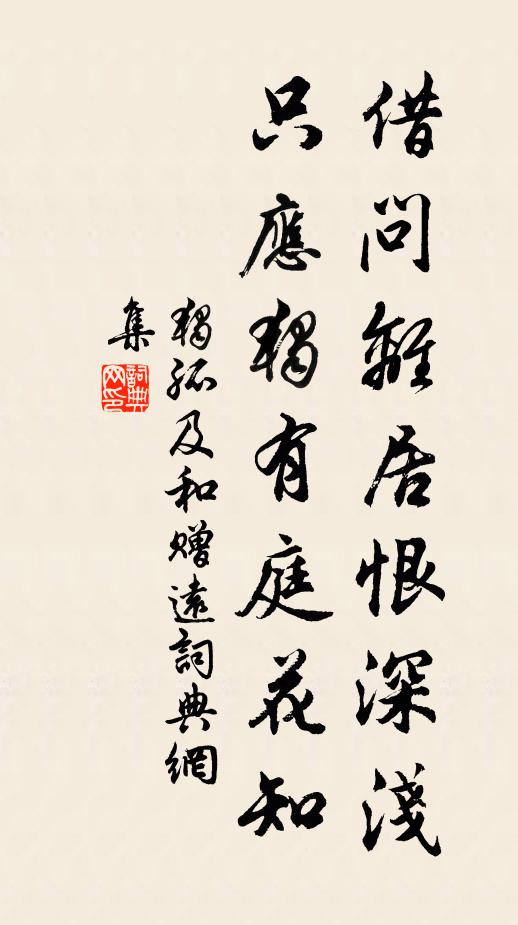 借問離居恨深淺
只應獨有庭花知
獨孤及和贈遠詞典網
集
詞典
网印